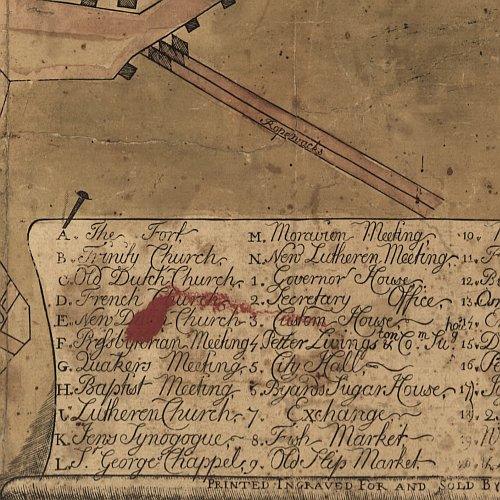 Ropewacks
A. The Fort.
B. Trinity Church.
C. Old Dutch Church.
D. French Church.
E. New Dutch Church
F. Presbyterian Meeting
G. Quakers Meeting.
H. Baptist Meeting
I. Lutheren Church.
K. Jens Synogogue.
L. St. George Chappel.
M. Moravien Meeting
N. New Lutheren Meeting
1. Governor House
2. Secretary Office.
3. Custom House
4. Petter Livings ton & Com Su g hous
5. City Hall
6. Byards Sugar House.
7. Exchange
8. Fish Market
9. Old Slip Market
10.
11.
12.
13.
15.
16.
17.
PRINTED INGRAVED FOR AND SOLD B